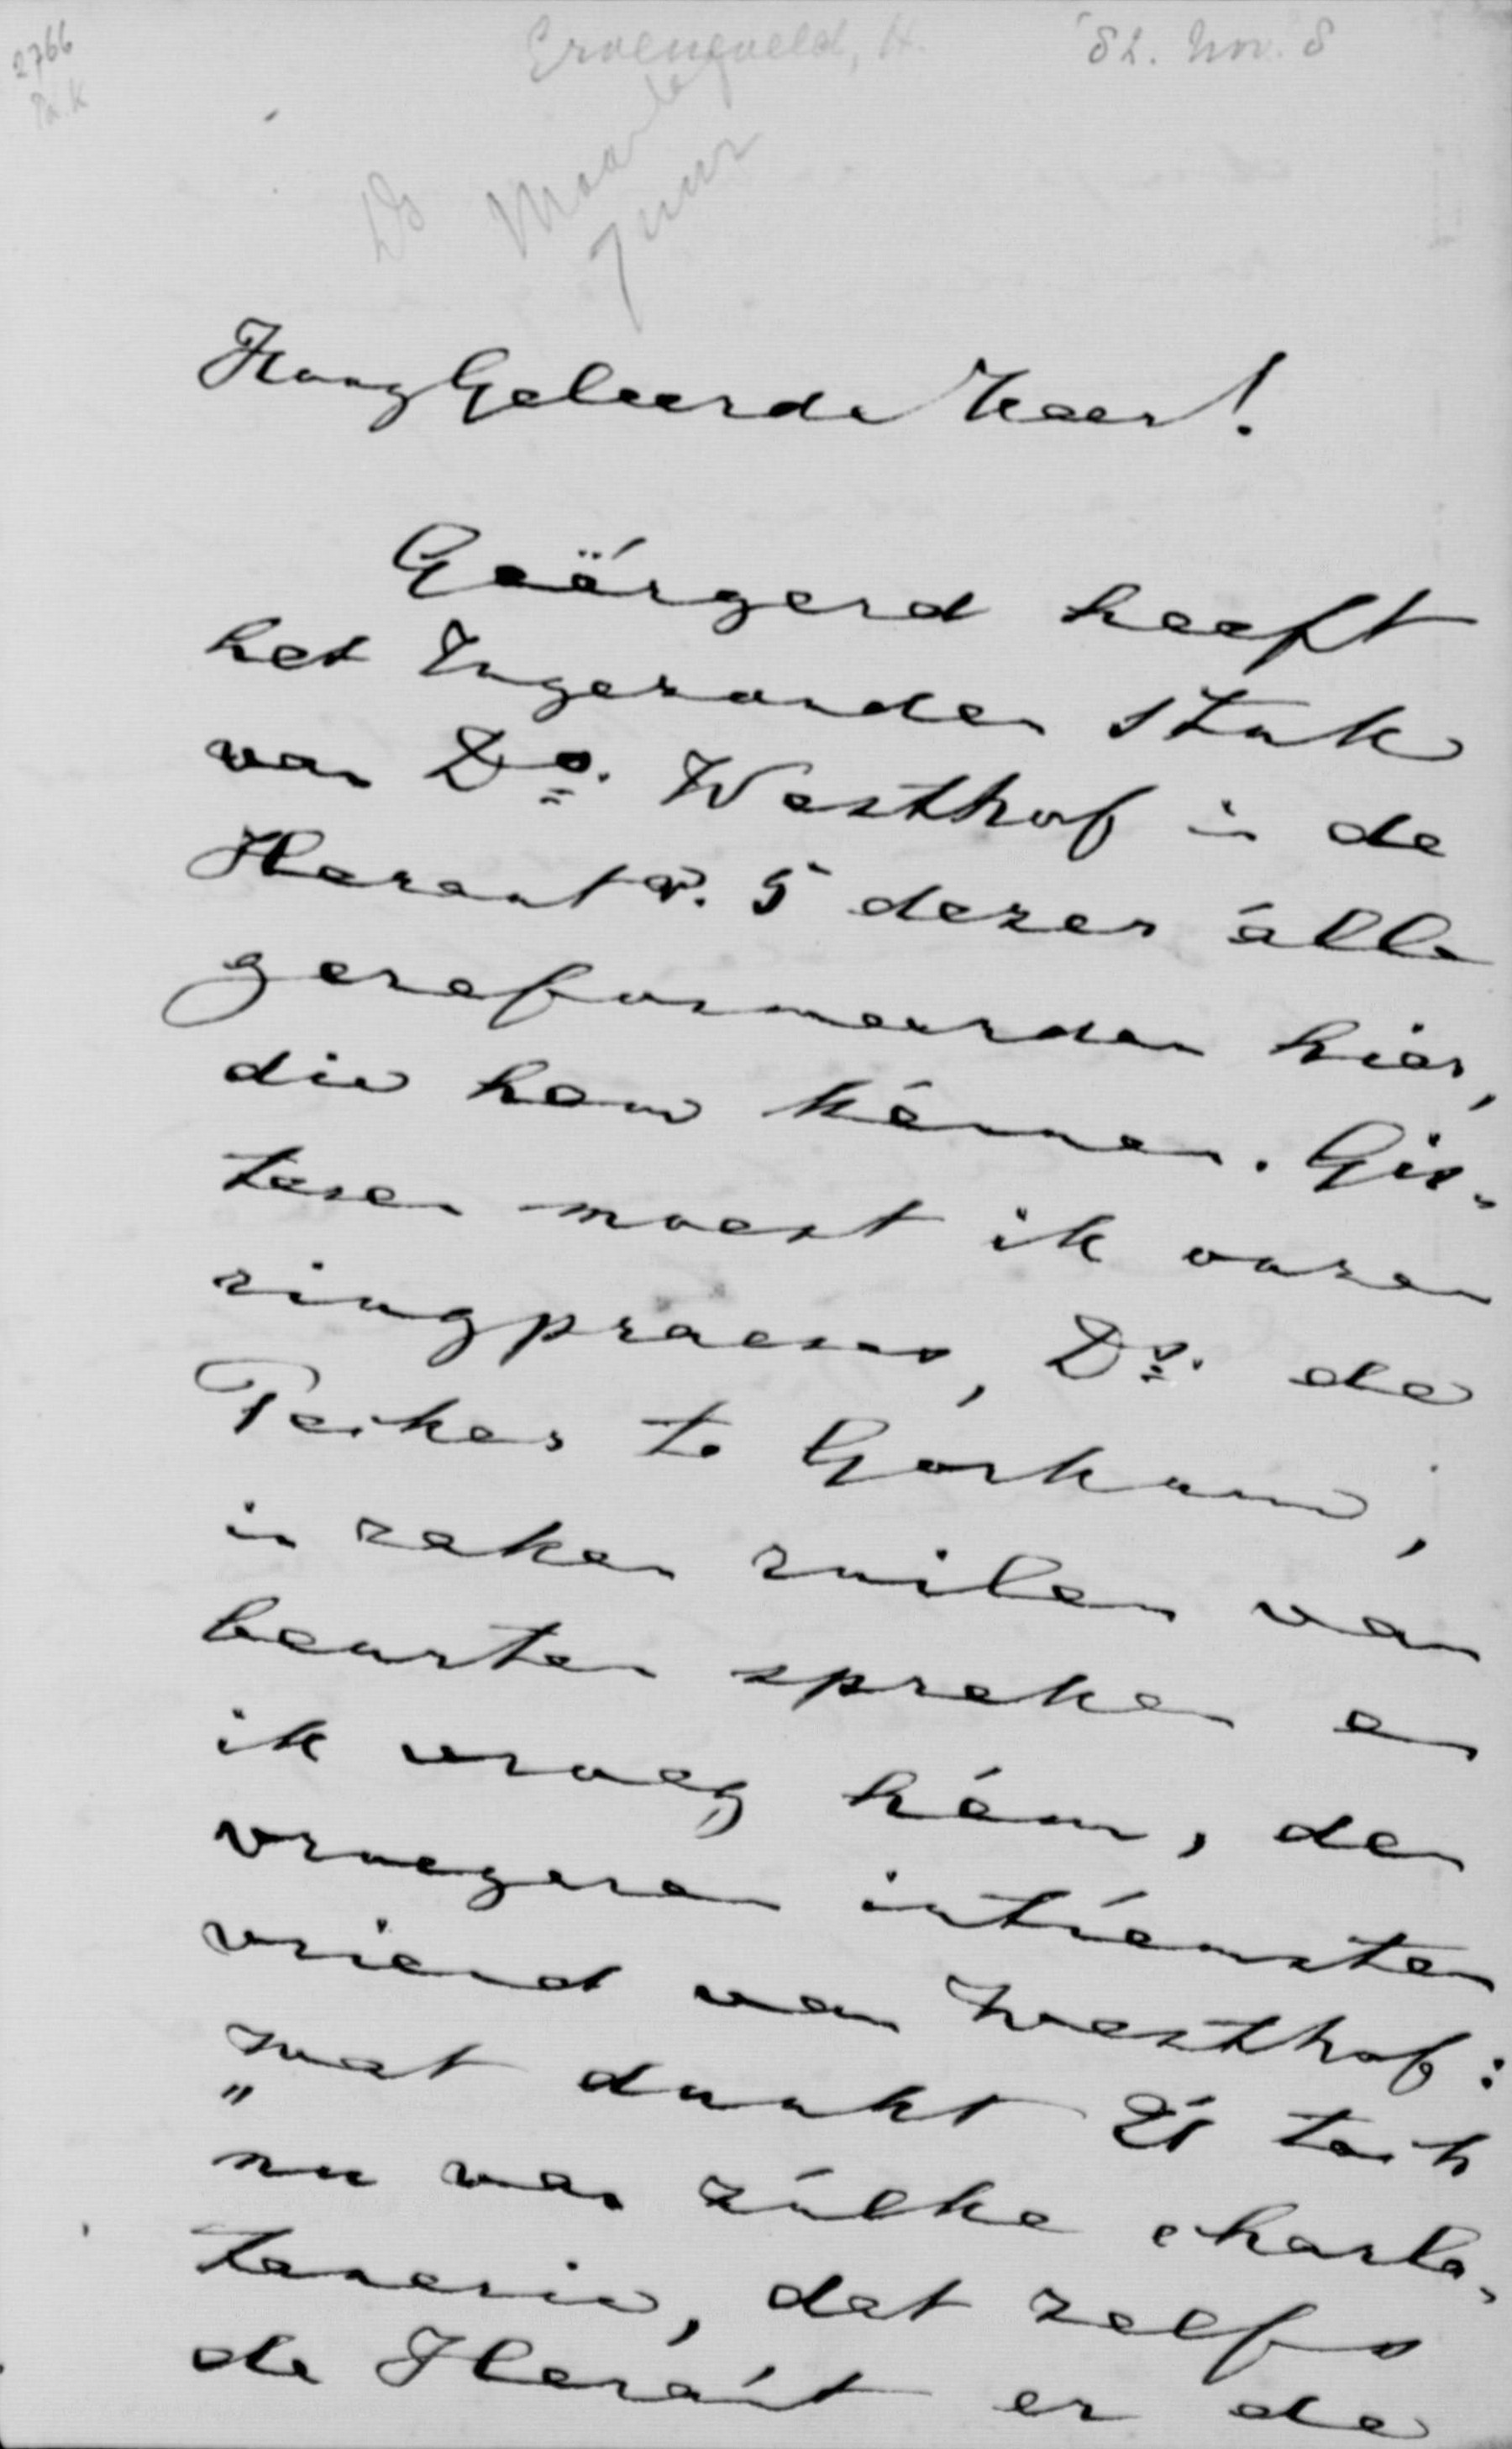 2766
Groeneveld, H. '82. Nov. 8
Ds
7 uur
HoogGeleerde Heer!
Geërgerd heeft
het Ingezonden Stuk
van Ds. Westhof in de
Heraut v. 5 dezer álle
gereformeerden hier,
die hem kénnen. Gis-
teren moest ik onzen
ringpraeses, Ds. de
to Gorkum,
in zaken ruilen van
beurten spreken en
ik vroeg hém, den
vroegeren intiemsten
vriend van Westhof:
"wat dunkt Ú toch
nu van zúlke charla-
tanerie, dat zelfs
de Heraút er de